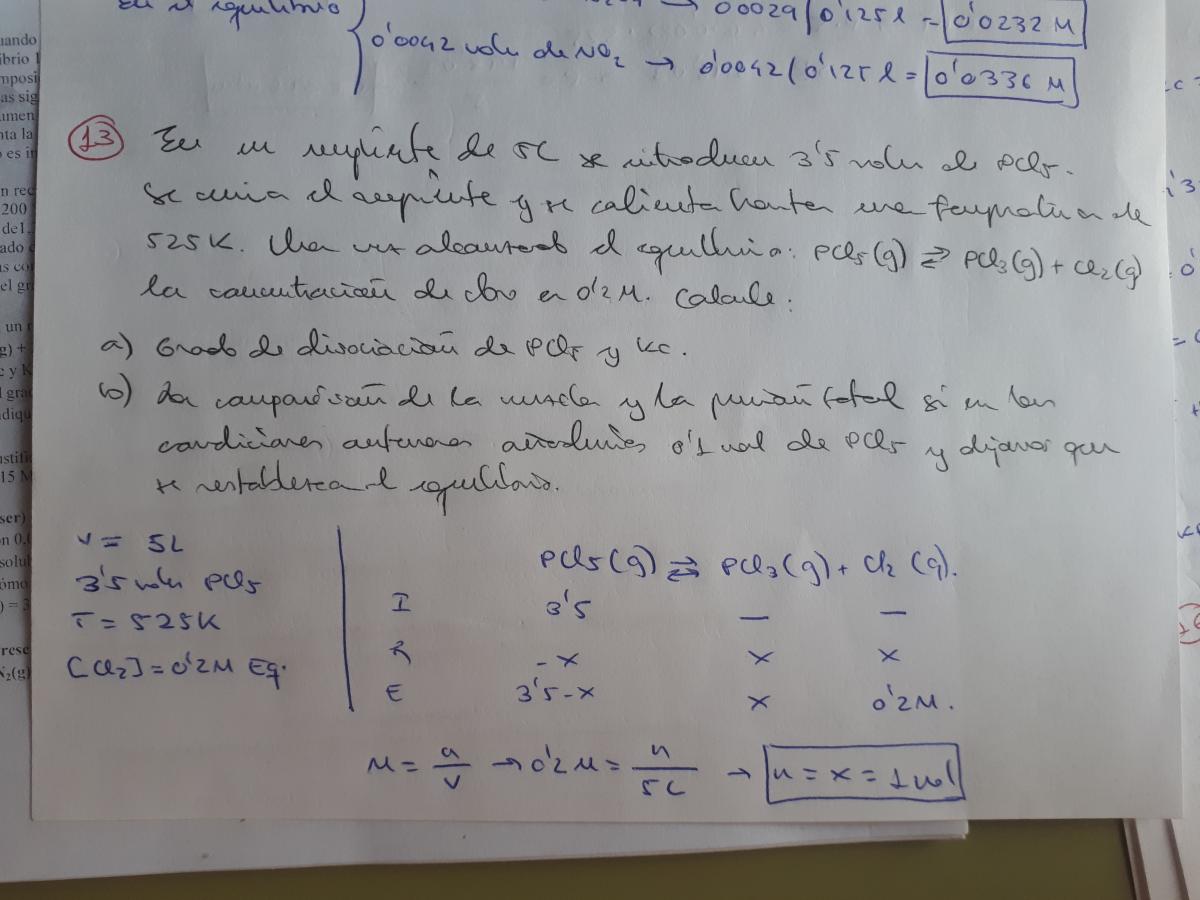 En el equilibrio
00029/0'125l = 0'0232 M
0'0042 moles de NO2 → 0'0042/0'125 l = 0'0336 M
13 En un recipiente de 5L se introducen 3'5 moles de PCl5.
Se cierra el recipiente y se calienta hasta una temperatura de
525K. Una vez alcanzado el equilibrio: PCl5(g) ⇄ PCl3(g) + Cl2(g)
la concentración de cloro es 0'2 M. Calcule:
a) Grado de disociación de PCl5 y Kc.
b) La composición de la mezcla y la presión total si en las
condiciones anteriores añadimos 0'1 mol de PCl5 y dejamos que
se restablezca el equilibrio.
V = 5L
3'5 moles PCl5
T = 525K
[Cl2] = 0'2M Eq.
PCl5(g) ⇄ PCl3(g) + Cl2 (g).
I 3'5 — —
R -x x x
E 3'5-x x 0'2M.
M = n/V → 0'2M = n/5L → n = x = 1 mol